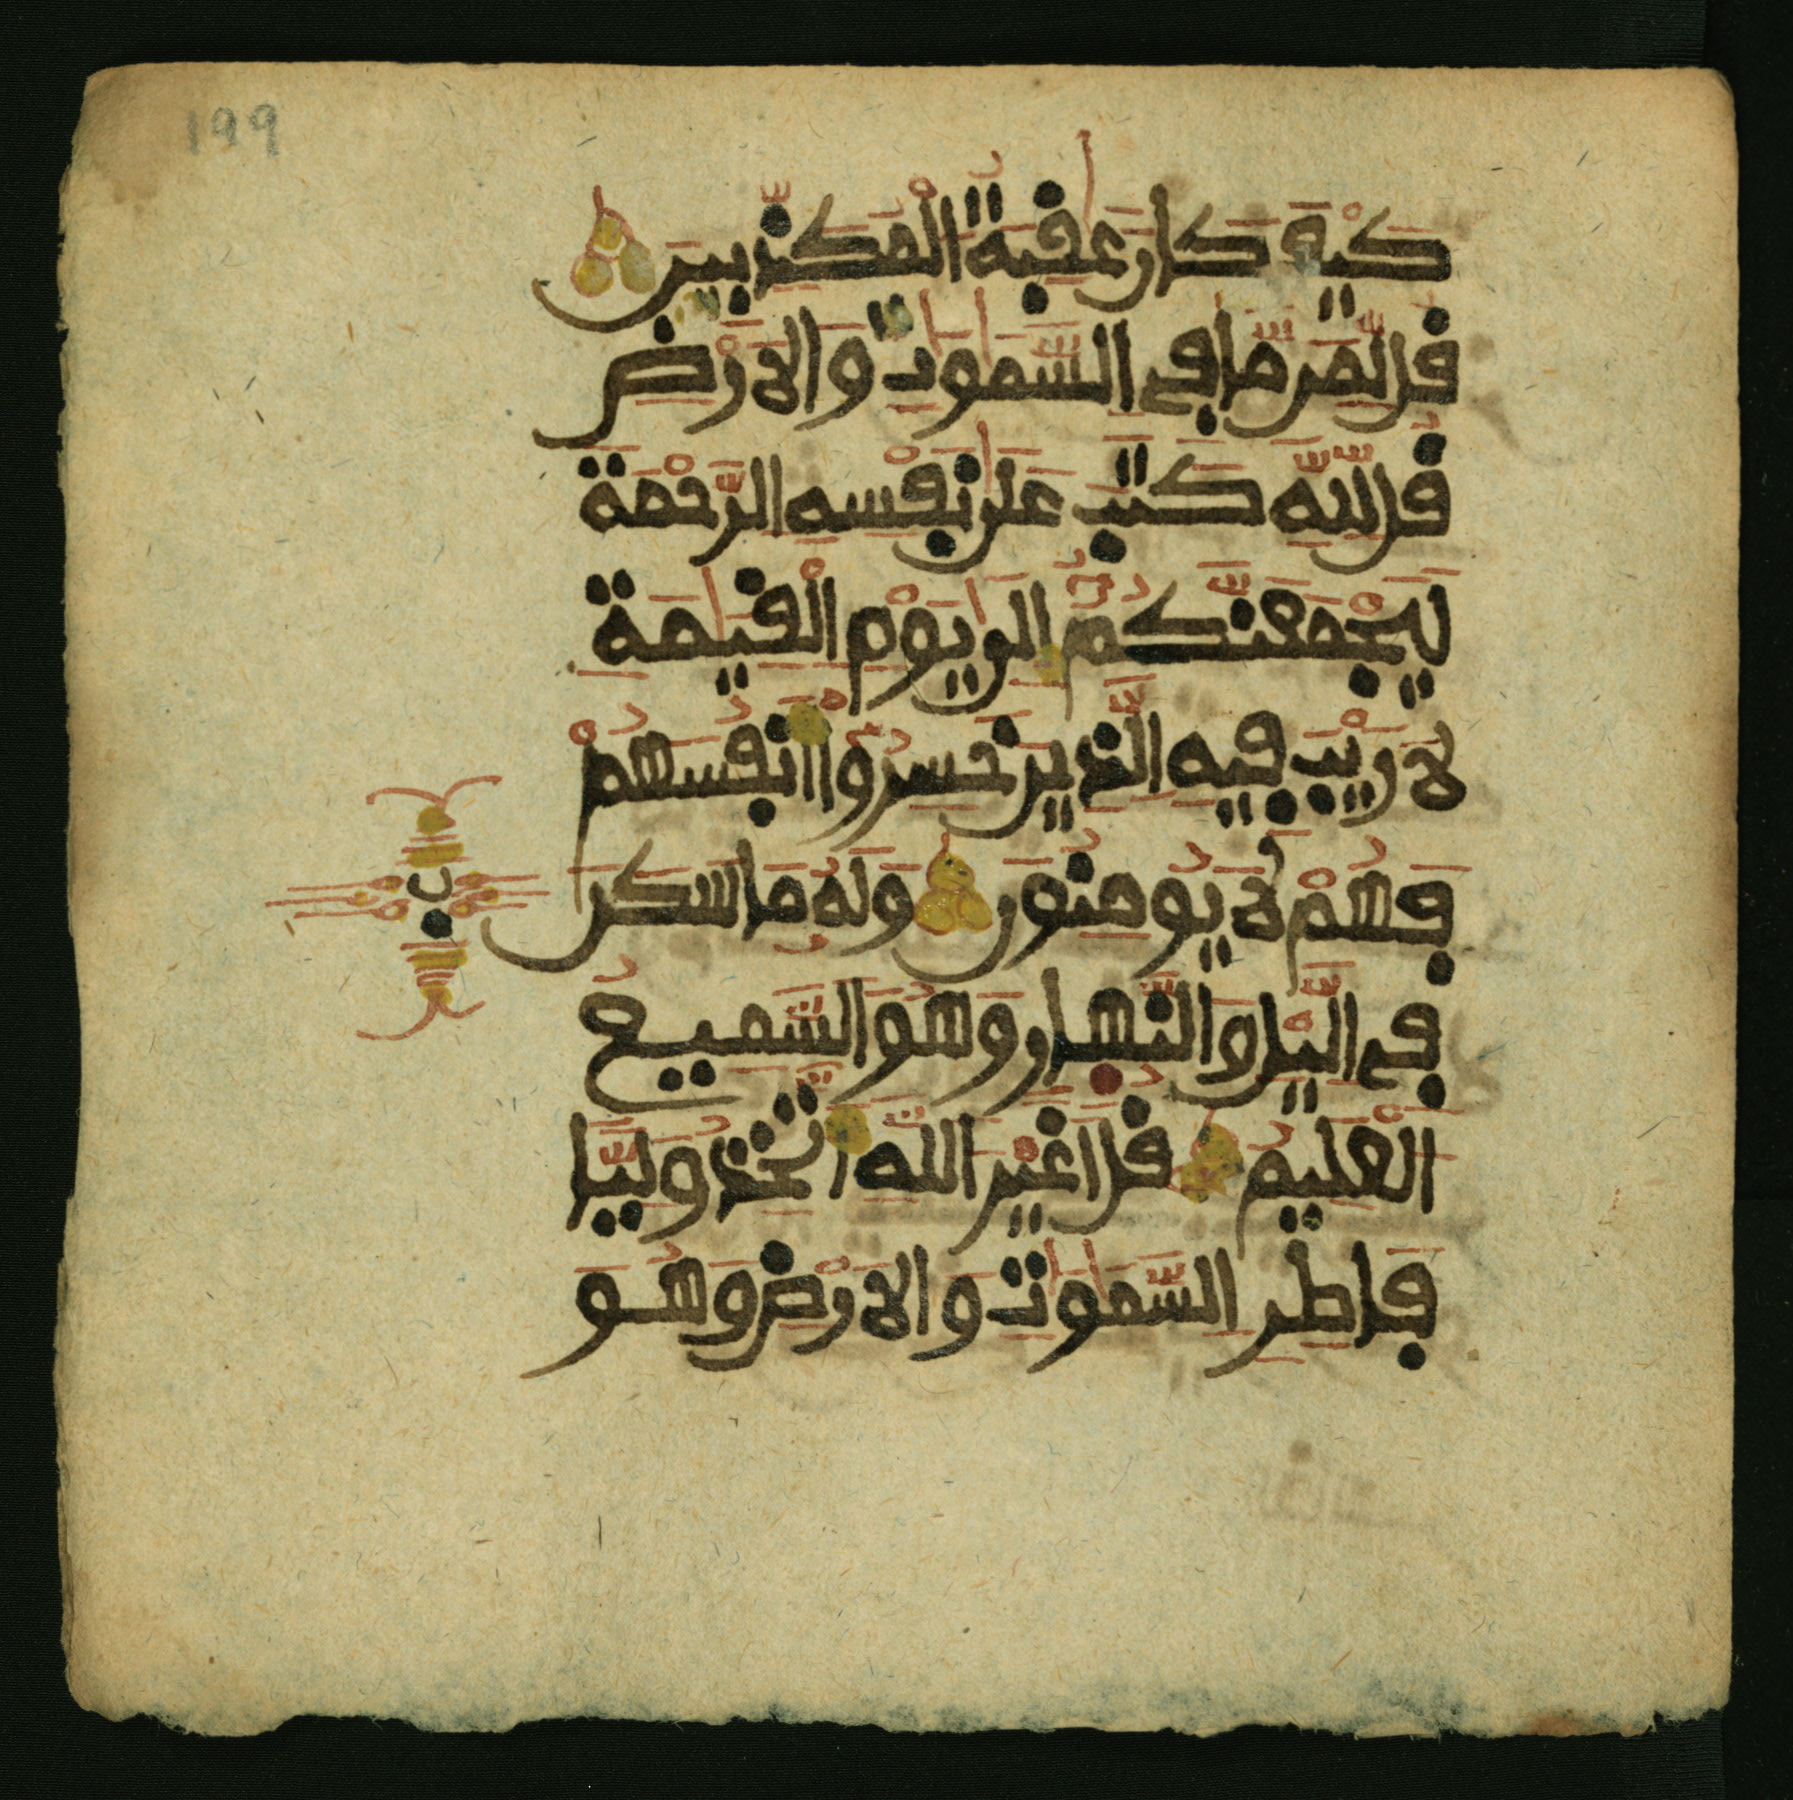 199
كَيْفَ كَانَ عَٰقِبَةُ الْمُكَذِّبِينَ
قُل لِّمَن مَّا فِي السَّمَٰوَٰتِ وَالَارْضِ
قُل لِّلَّهِ كَتَبَ عَلَىٰ نَفْسِهِ الرَّحْمَةَ
لَيَجْمَعَنَّكُمُ إِلَىٰ يَوْمِ الْقِيَٰمَةِ
لَا رَيْبَ فِيهِ الَّذِينَ خَسِرُوا أَنفُسَهُمْ
فَهُمْ لَا يُومِنُونَ وَلَهُ مَا سَكَنَ
ب
فِي الَّيْلِ وَالنَّهَارِ وَهُوَ السَّمِيعُ
الْعَلِيمُ قُلَ اغَيْرَ اللَّهِ أَتَّخِذُ وَلِيًّا
فَاطِرِ السَّمَٰوَٰتِ وَالَارْضِ وَهُوَ